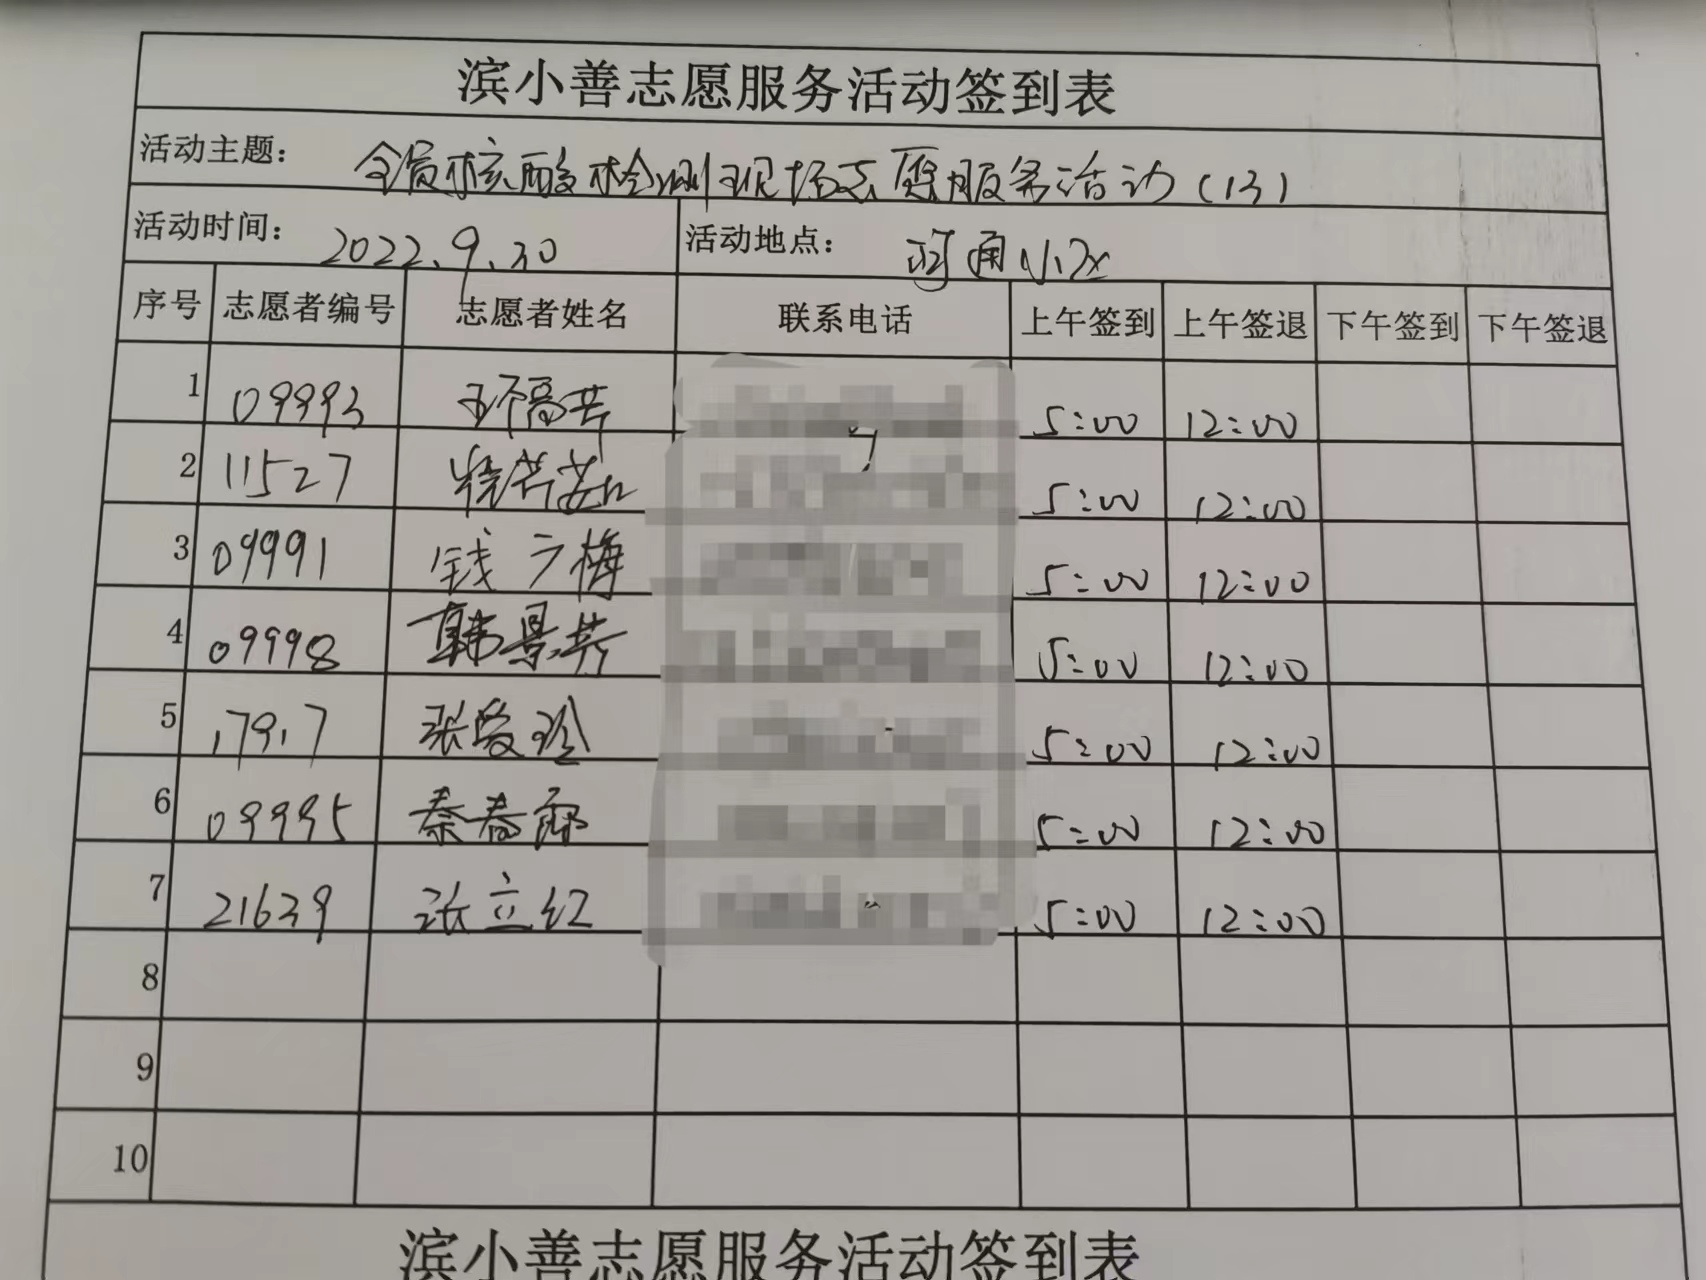 滨小善志愿服务活动签到表
活动主题： 全员核酸检测现场志愿服务活动（13）
活动时间： 2022.9.30 活动地点： 小区
序号 志愿者编号 志愿者姓名 联系电话 上午签到 上午签退 下午签到 下午签退
1 09993 5:00 12:00
2 11527 5:00 12:00
3 09991 钱广梅 5:00 12:00
4 09998 韩景芬 5:00 12:00
5 17917 张爱玲 5:00 12:00
6 09995 秦春丽 5:00 12:00
7 21639 张立红 5:00 12:00
8
9
10
滨小善志愿服务活动签到表